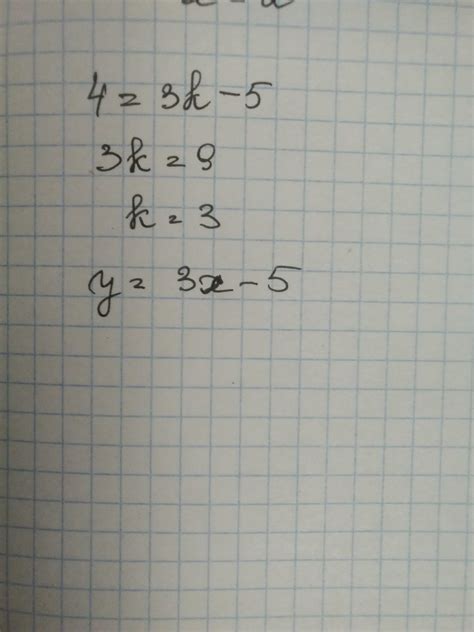 4 = 3k - 5
3k = 9
k = 3
y = 3x - 5